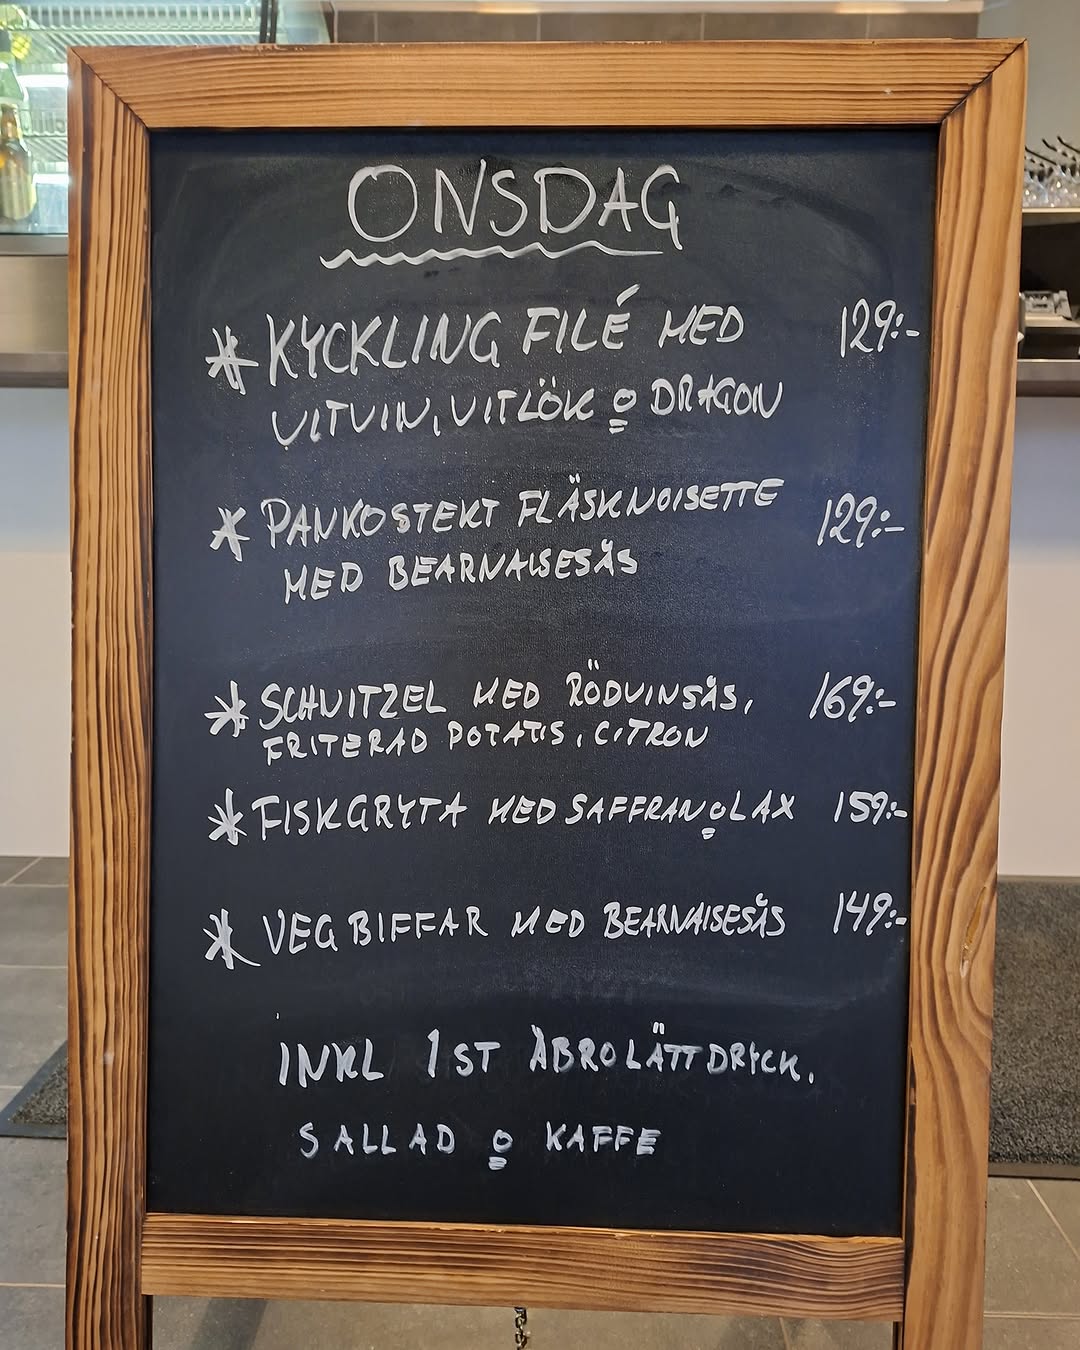 ONSDAG
* KYCKLING FILÉ MED 129:-
VITVIN, VITLÖK o DRAGON
* PANKOSTEKT FLÄSKNOISETTE 129:-
MED BEARNAISESÅS
* SCHNITZEL MED RÖDVINSÅS, 169:-
FRITERAD POTATIS, CITRON
* FISKGRYTA MED SAFFRAN o LAX 159:-
* VEG BIFFAR MED BEARNAISESÅS 149:-
INKL 1ST ÅBRO LÄTTDRYCK,
SALLAD o KAFFE